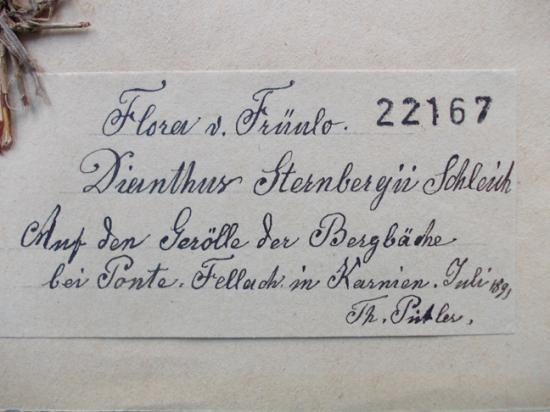 Flora v. Früulo. 22167
Dianthus Sternbergii Schleich
Auf den Gerölle der Bergbäche
bei Ponte-Fellach in Karnien. Juli
Th. Pichler.